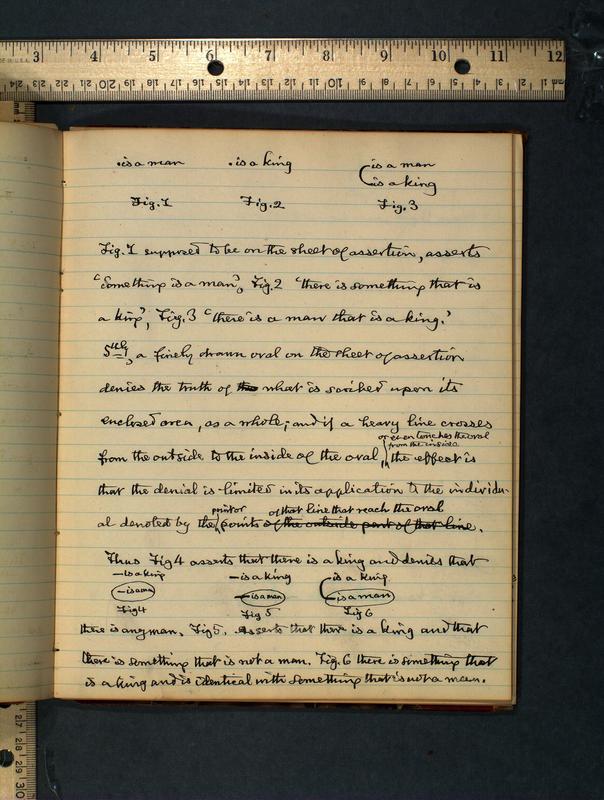 3 4 5 6 7 8 9 10 11 12
·is a man ·is a king is a man
is a king
Fig. 1 Fig. 2 Fig. 3
Fig. 1 supposed to be on the sheet of assertion, asserts
'Something is a man', Fig. 2 'there is something that is
a king', Fig. 3 'there is a man that is a king.'
5thly, a finely drawn oval on the sheet of assertion
denies the truth of what is scribed upon its
enclosed area, as a whole; and if a heavy line crosses
or even touches the oval
from the inside
from the outside to the inside of the oval, the effect is
that the denial is limited in its application to the individu-
point or of that line that reach the oval
al denoted by the points of the outside part of that line.
Thus Fig 4 asserts that there is a king and denies that
–is a king –is a king is a king
–is a man –is a man is a man
Fig 4 Fig 5 Fig 6
there is any man. Fig 5. Asserts that there is a king and that
there is something that is not a man. Fig. 6 there is something that
is a king and is identical with something that is not a man.